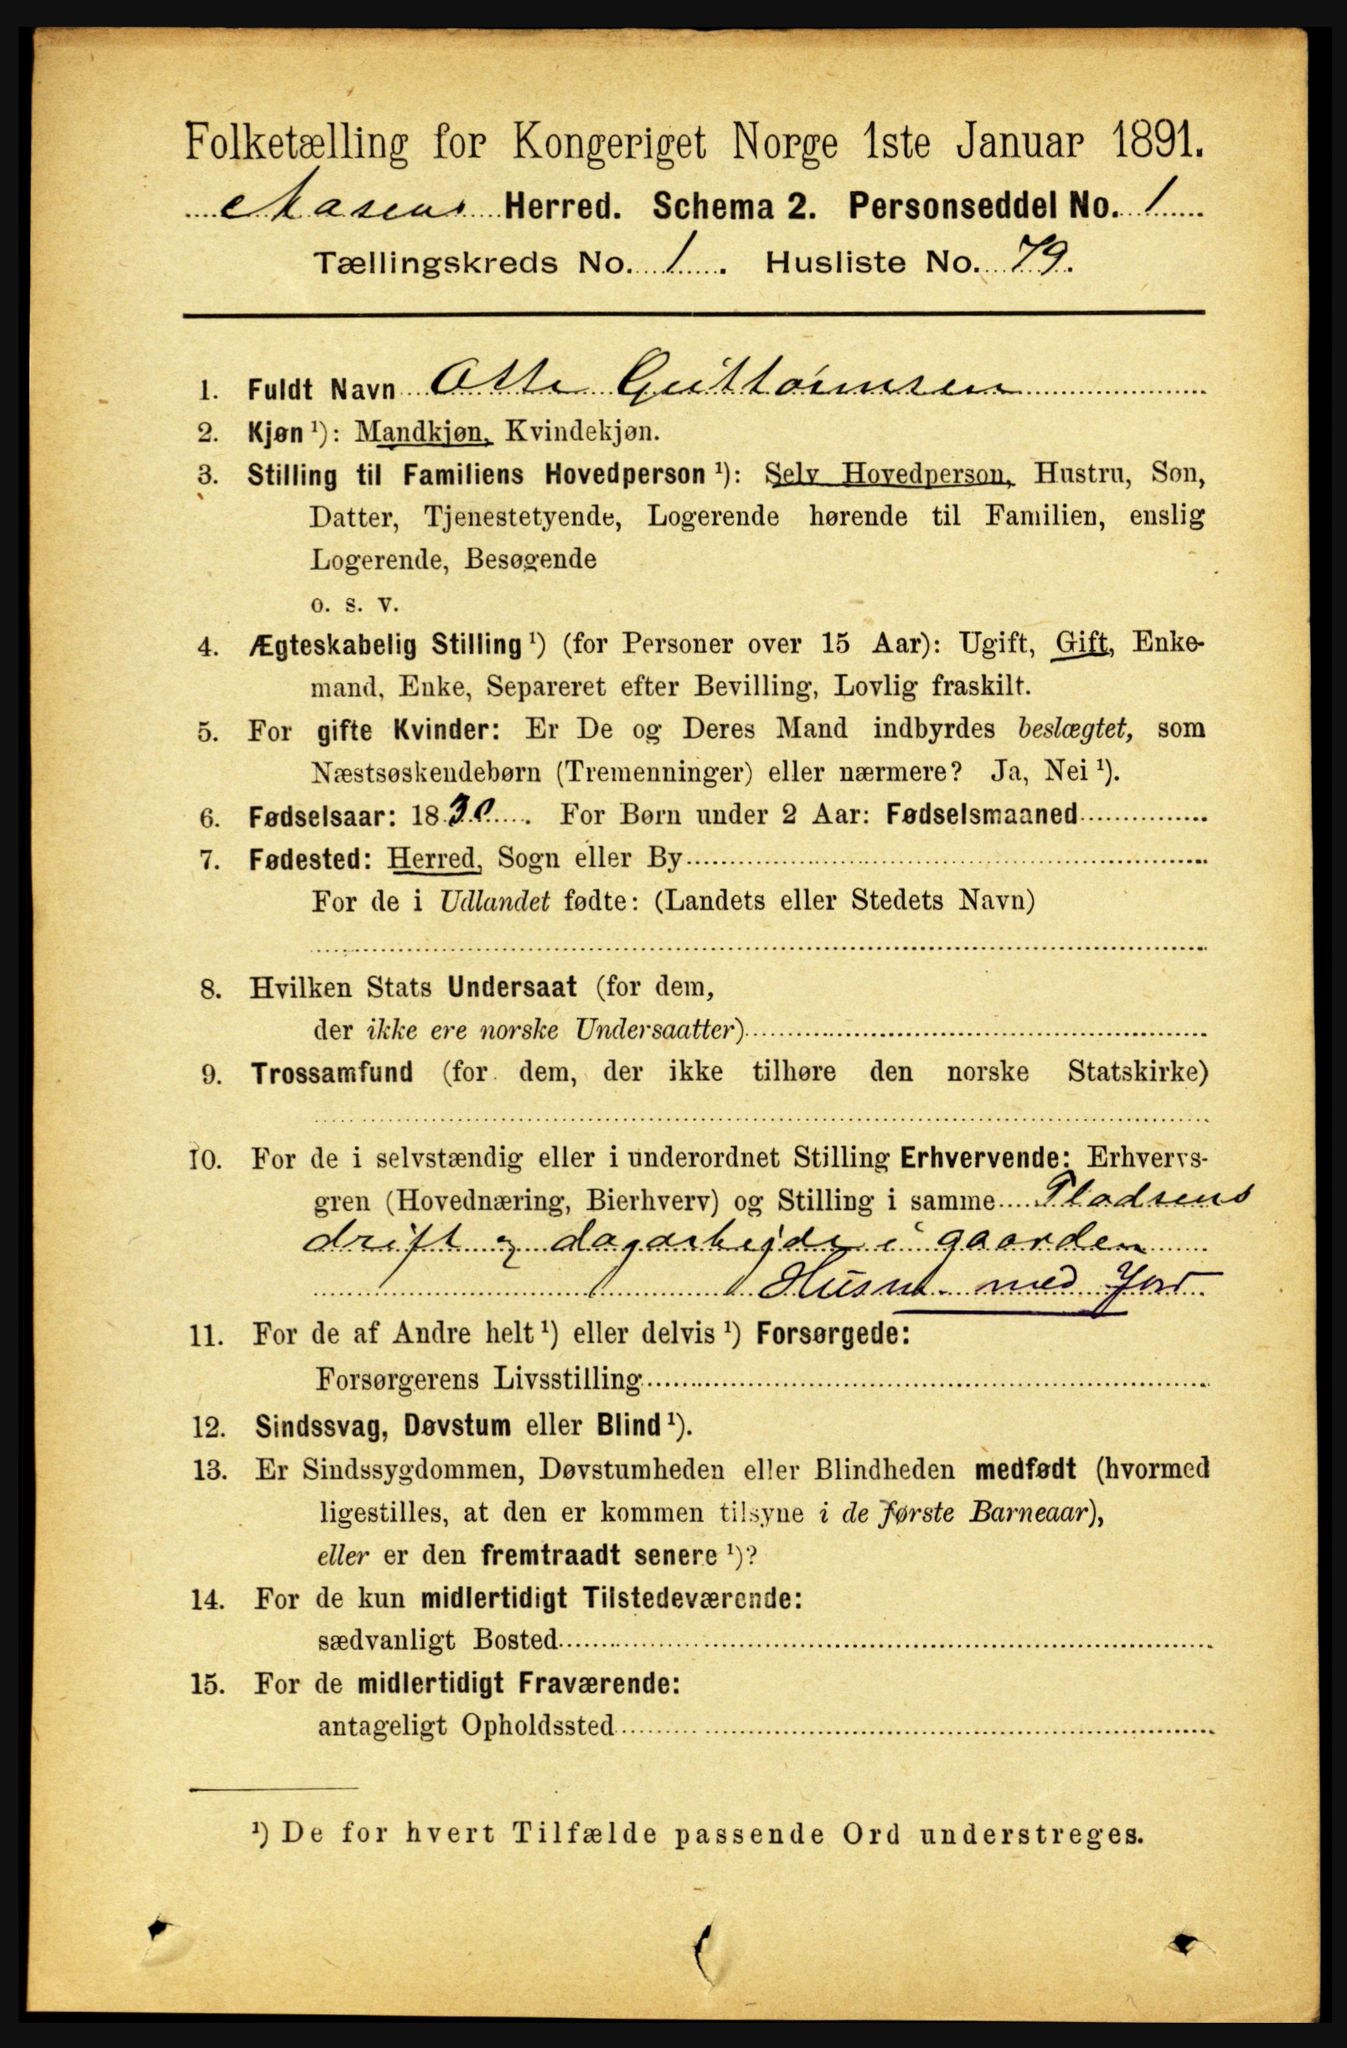 Folketælling for Kongeriget Norge 1ste Januar 1891.
Herred. Schema 2. Personseddel No. 1
Tællingskreds No. 1. Husliste No. 79.
1. Fuldt Navn Otte Guttormsen
2. Kjøn ¹): Mandkjøn, Kvindekjøn.
3. Stilling til Familiens Hovedperson ¹): Selv Hovedperson, Hustru, Søn,
Datter, Tjenestetyende, Logerende hørende til Familien, enslig
Logerende, Besøgende
o. s. v.
4. Ægteskabelig Stilling ¹) (for Personer over 15 Aar): Ugift, Gift, Enke-
mand, Enke, Separeret efter Bevilling, Lovlig fraskilt.
5. For gifte Kvinder: Er De og Deres Mand indbyrdes beslægtet, som
Næstsøskendebørn (Tremenninger) eller nærmere? Ja, Nei ¹).
6. Fødselsaar: 1830. For Børn under 2 Aar: Fødselsmaaned
7. Fødested: Herred, Sogn eller By
For de i Udlandet fødte: (Landets eller Stedets Navn)
8. Hvilken Stats Undersaat (for dem,
der ikke ere norske Undersaatter)
9. Trossamfund (for dem, der ikke tilhøre den norske Statskirke)
10. For de i selvstændig eller i underordnet Stilling Erhvervende: Erhvervs-
gren (Hovednæring, Bierhverv) og Stilling i samme Pladsens
drift og dagarbejde i gaarden
Husm. med Jord
11. For de af Andre helt ¹) eller delvis ¹) Forsørgede:
Forsørgerens Livsstilling
12. Sindssvag, Døvstum eller Blind ¹).
13. Er Sindssygdommen, Døvstumheden eller Blindheden medfødt (hvormed
ligestilles, at den er kommen tilsyne i de første Barneaar),
eller er den fremtraadt senere ¹)?
14. For de kun midlertidigt Tilstedeværende:
sædvanligt Bosted
15. For de midlertidigt Fraværende:
antageligt Opholdssted
¹) De for hvert Tilfælde passende Ord understreges.